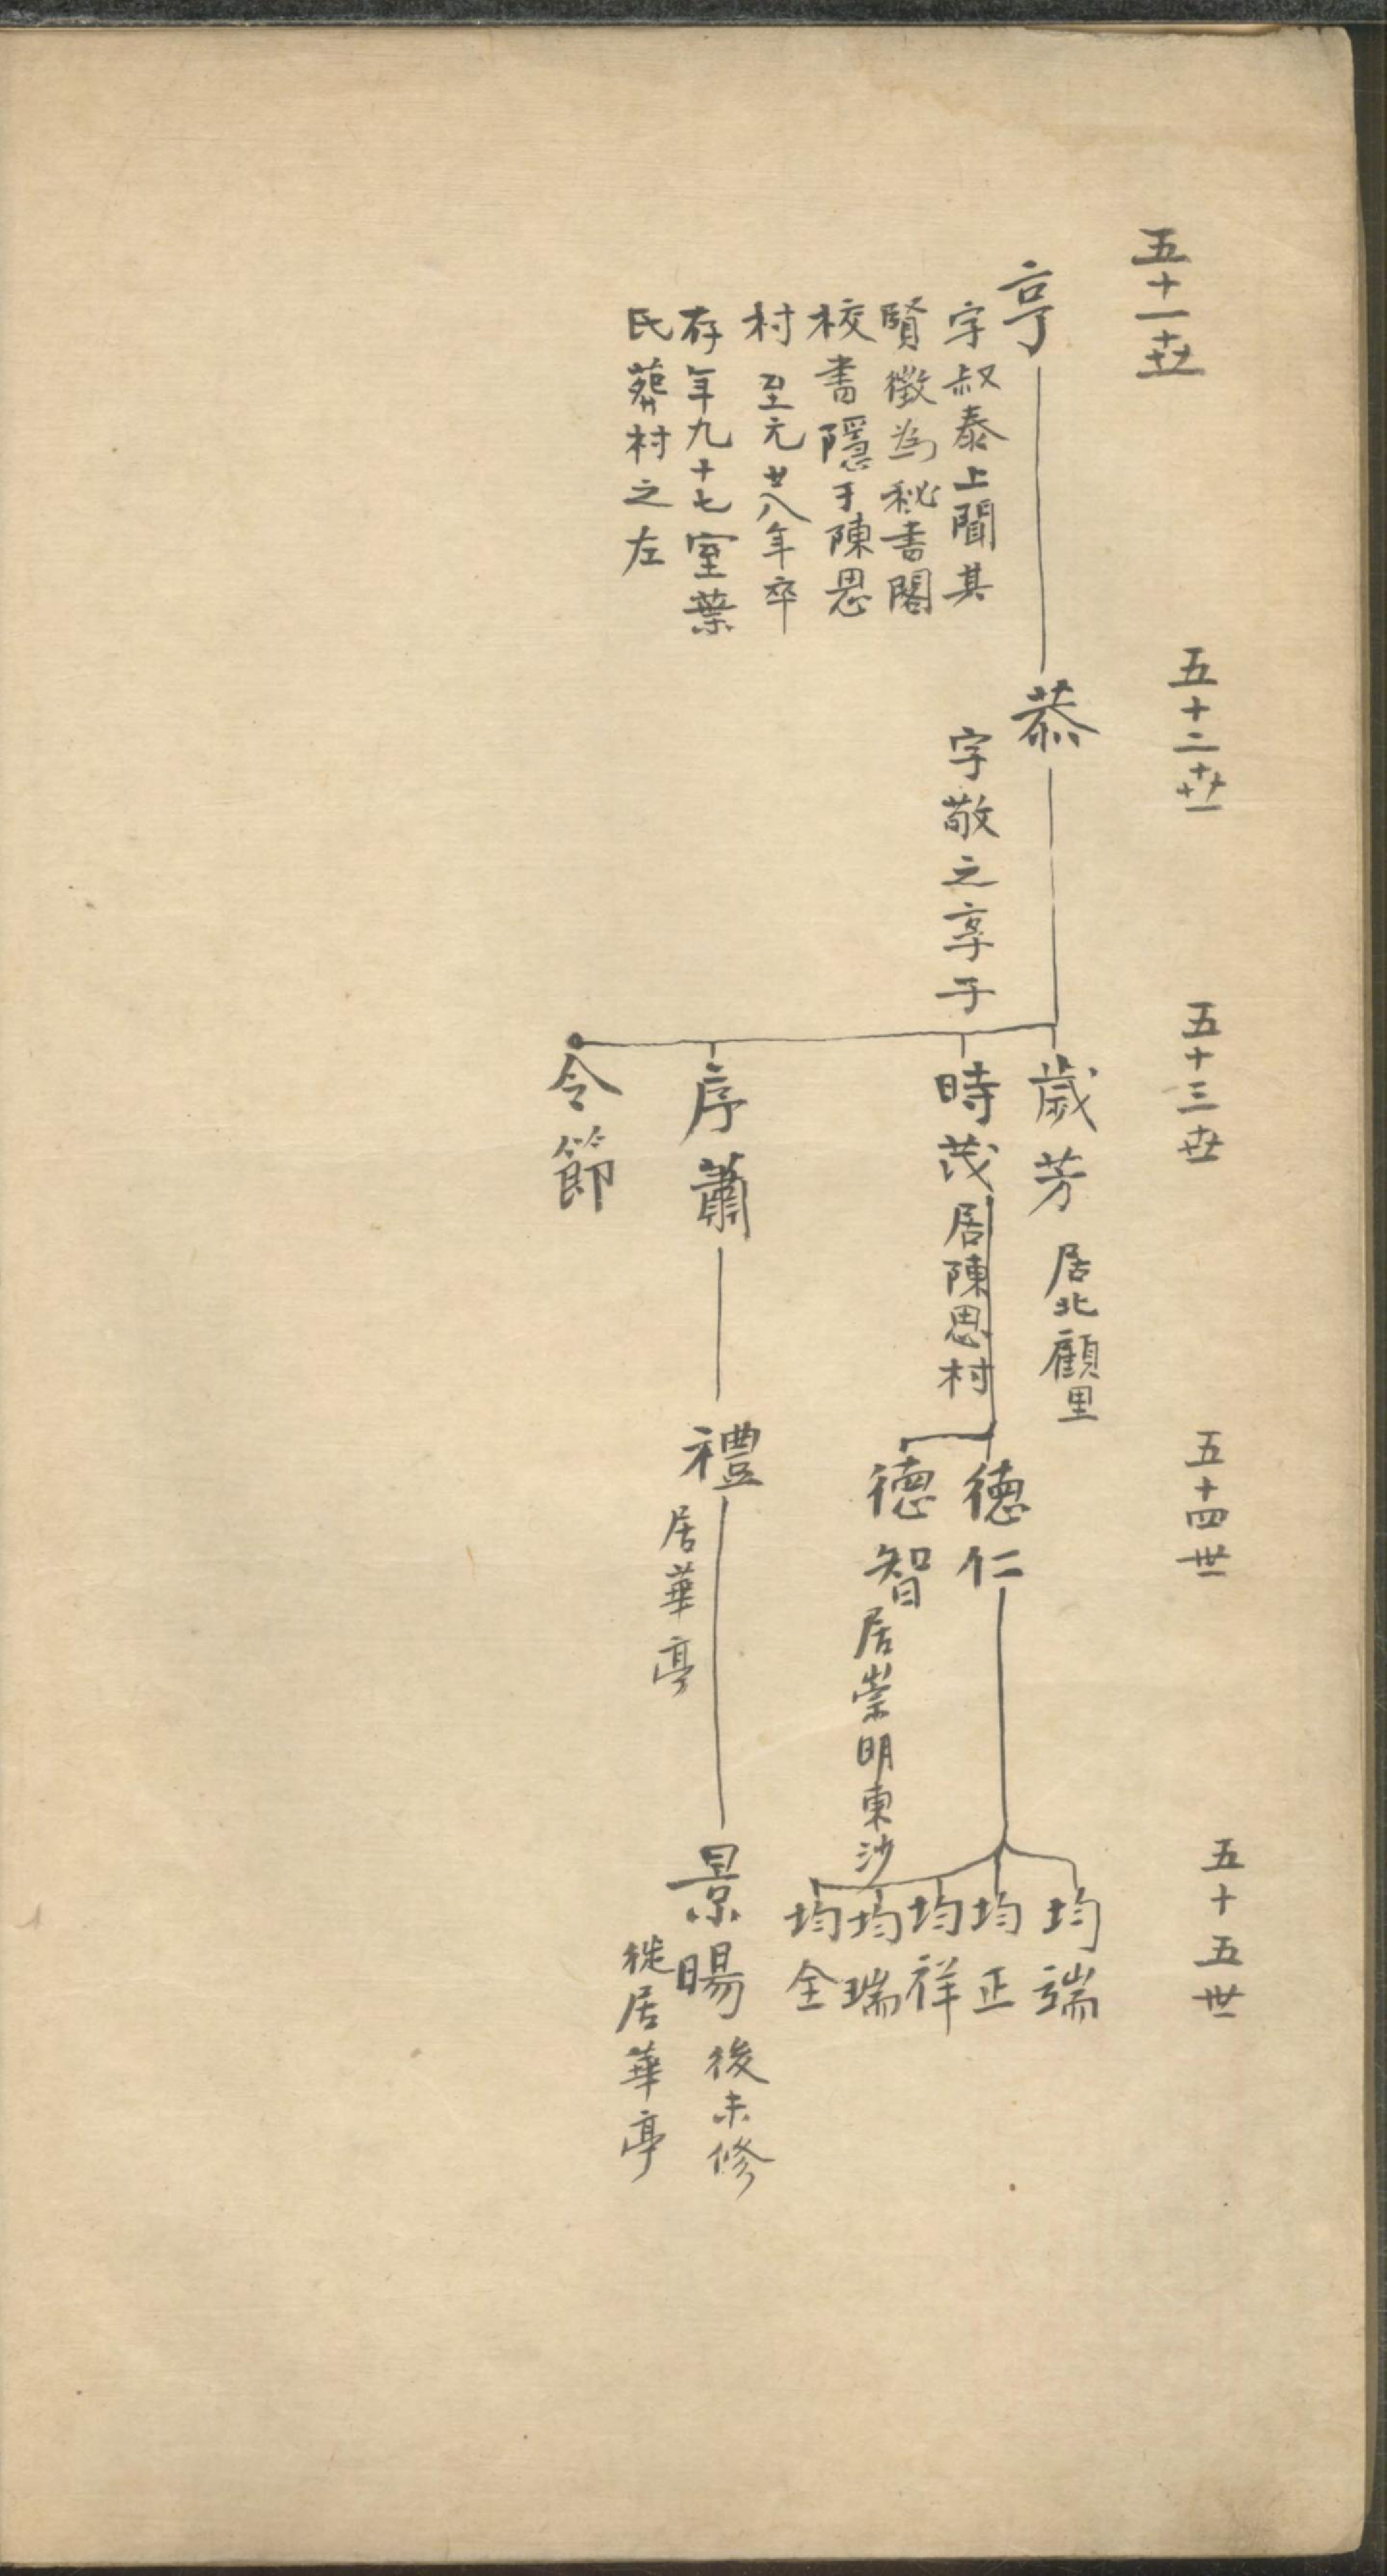 五十一世
亨
字叔泰上聞其
賢徵為秘書閣
校書隱于陳思
村至元廿八年卒
存年九十七室葉
氏葬村之左
五十二世
恭
字敬之享子
五十三世
歲芳
居北顧里
時茂
居陳思村
序蕭
令節
五十四世
德仁
德智
居崇明東沙
禮
居華亭
五十五世
均端
均正
均祥
均瑞
均全
景暘
後未修
徙居華亭